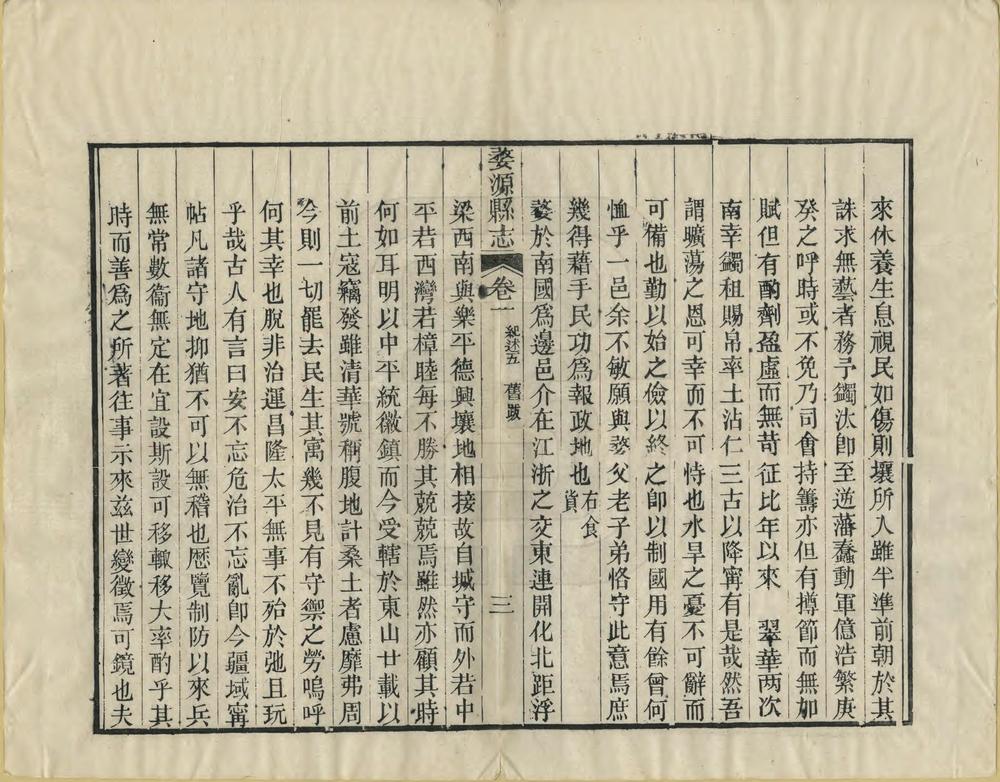 來休養生息視民如傷則壤所入雖半準前朝於其
誅求無藝者務予蠲汰卽至逆藩蠢動軍億浩繁庚
癸之呼時或不免乃司會持籌亦但有撙節而無加
賦但有酌劑盈虛而無苛征比年以來　翠華兩次
南幸蠲租賜帛率土沾仁三古以降寧有是哉然吾
謂曠蕩之恩可幸而不可恃也水旱之憂不可辭而
可備也勤以始之儉以終之卽以制國用有餘曾何
恤乎一邑余不敏願與婺父老子弟恪守此意焉庶
幾得藉手民功爲報政地也右食貨
婺於南國爲邊邑介在江浙之交東連開化北距浮
婺源縣志　卷一　紀述五　舊敘　三
梁西南與樂平德興壤地相接故自城守而外若中
平若西灣若樟睦每不勝其兢兢焉雖然亦顧其時
何如耳明以中平統徽鎮而今受轄於東山廿載以
前土寇竊發雖清華號稱腹地計桑土者慮靡弗周
今則一切罷去民生其寓幾不見有守禦之勞嗚呼
何其幸也脫非治運昌隆太平無事不殆於弛且玩
乎哉古人有言曰安不忘危治不忘亂卽今疆域寧
帖凡諸守地抑猶不可以無稽也歷覽制防以來兵
無常數衞無定在宜設斯設可移輙移大率酌乎其
時而善爲之所著往事示來兹世變徵焉可鏡也夫